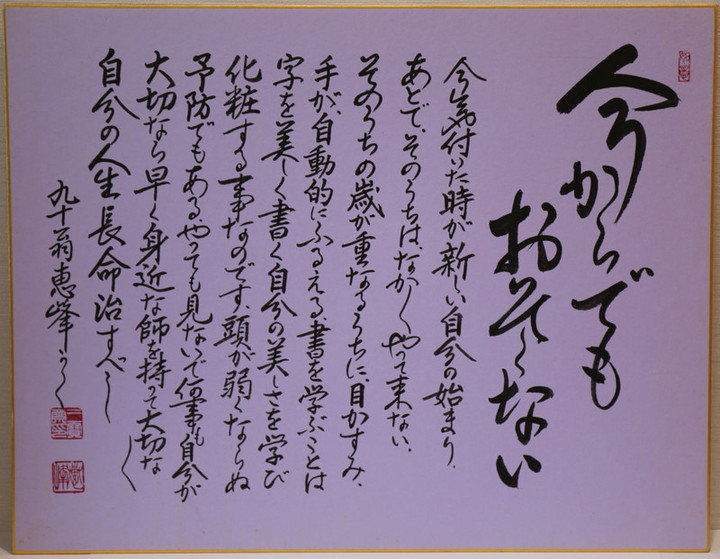 今からでも
おそくない
今気付いた時が新しい自分の始まり、
あとで、そのうちは、なか〳〵やって来ない、
そのうちの歳が重なるうちに、目かすみ、
手が、自動的にふるえる、書を学ぶことは
字を美しく書く自分の美しさを学び
化粧する事なのです、頭が弱くならぬ
予防でもあるやっても見ないで何事も自分が
大切なら早く身近な師を持って大切な
自分の人生長命治すべし
九十翁恵峰かく